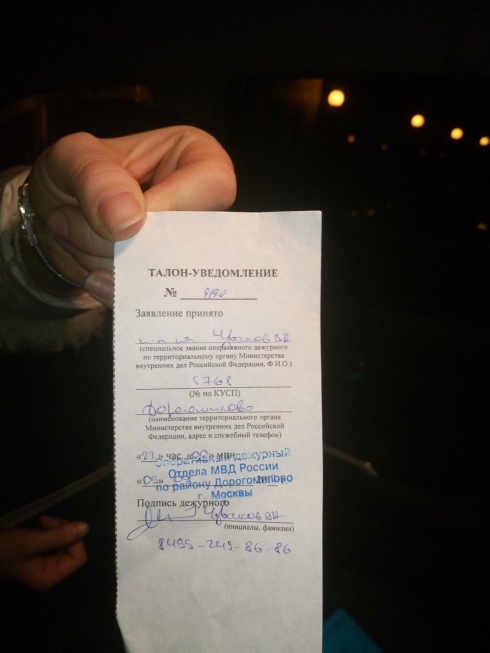 ТАЛОН-УВЕДОМЛЕНИЕ
№
Заявление принято
(специальное звание оперативного дежурного
по территориальному органу Министерства
внутренних дел Российской Федерации, Ф.И.О.)
5768
(№ по КУСП)
Дорогомилово
(наименование территориального органа
Министерства внутренних дел Российской
Федерации, адрес и служебный телефон)
час мин
Оперативный дежурный
Отдела МВД России
по району Дорогомилово
г. Москвы
Подпись дежурного
(инициалы, фамилия)
8495-249-86-86